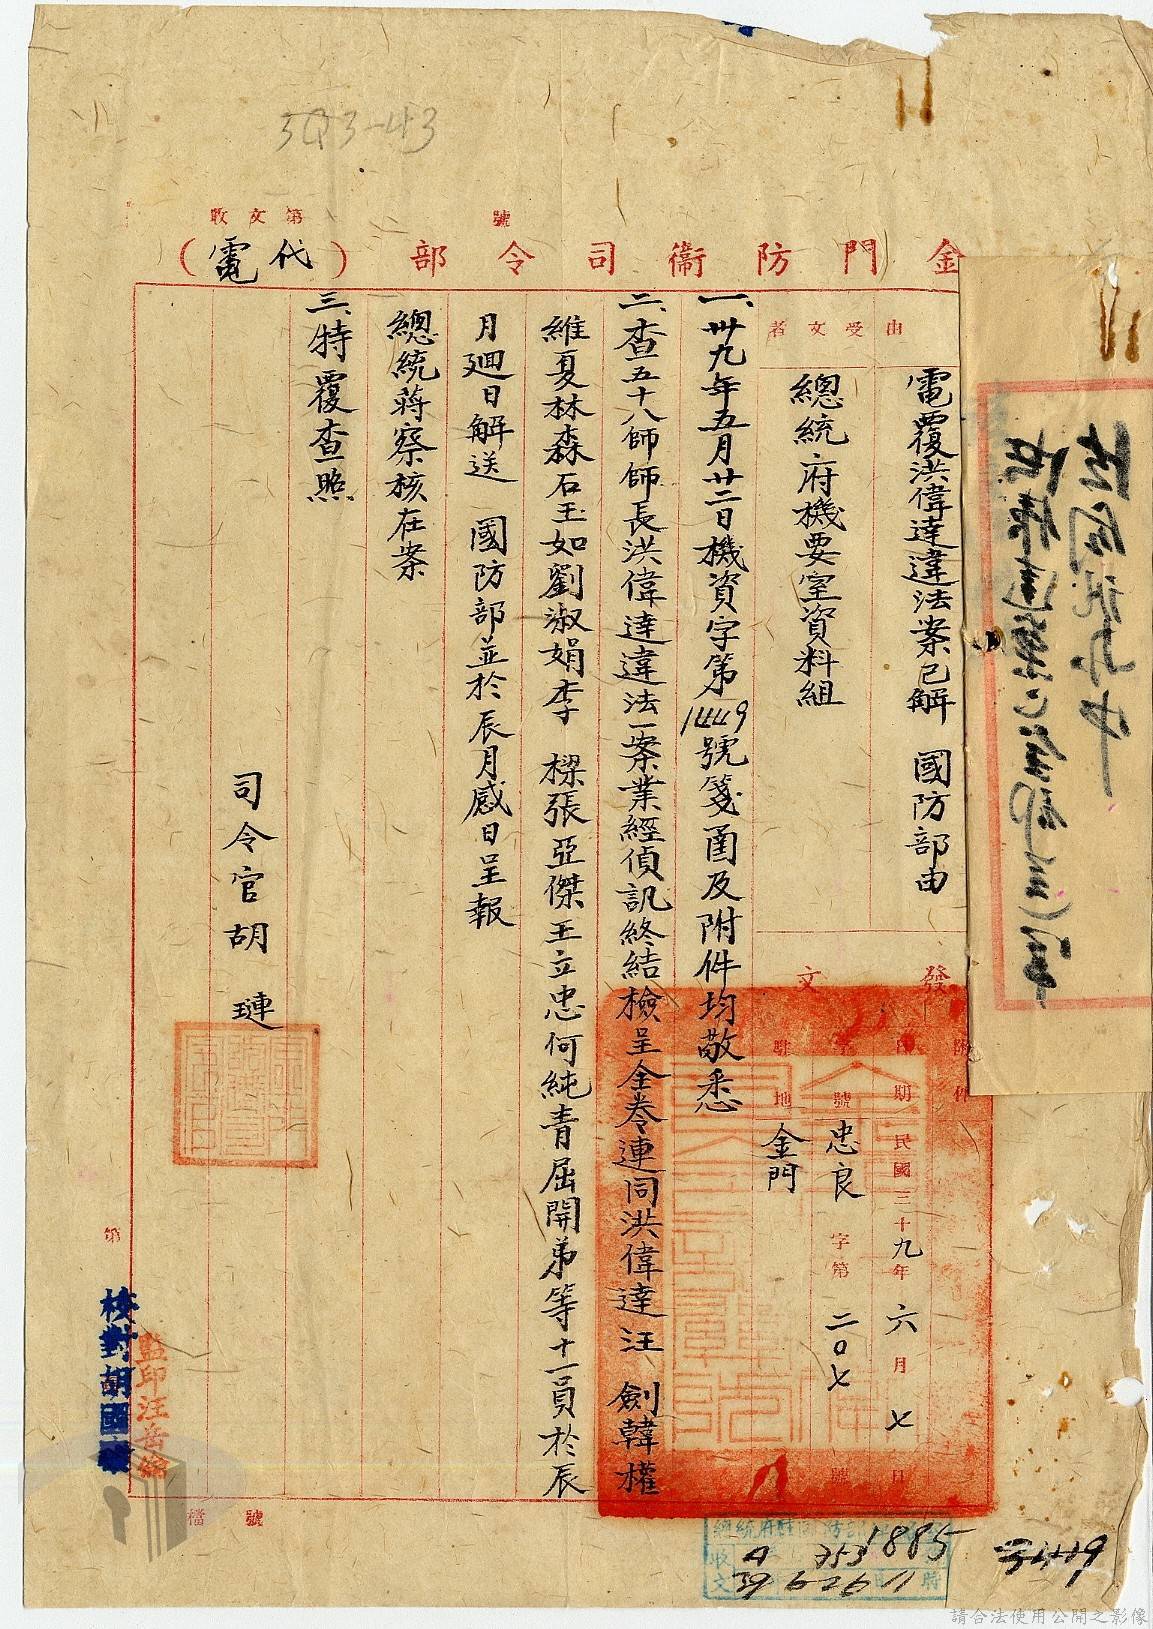 3Q3-43
收文第 號
金門防衛司令部(代電)
由 電覆洪偉達違法案已解 國防部由
受文者 總統府機要室資料組
發文
附件
日期 民國三十九年六月七日
字號 忠良字第二〇七號
駐地 金門
一、卅九年五月廿二日機資字第1449號箋函及附件均敬悉
二、查五十八師師長洪偉達違法一案業經偵訊終結檢呈全卷連同洪偉達汪 劍韓權
維夏林森石玉如劉淑娟李 樑張亞傑王立忠何純青屈開弟等十一員於辰
月迴日解送 國防部並於辰月感日呈報
總統蔣察核在案
三、特覆查照
司令官胡 璉
第
校對胡國
監印汪
檔 號
總統府
收文
1885
353
62611
時
1449
請合法使用公開之影像